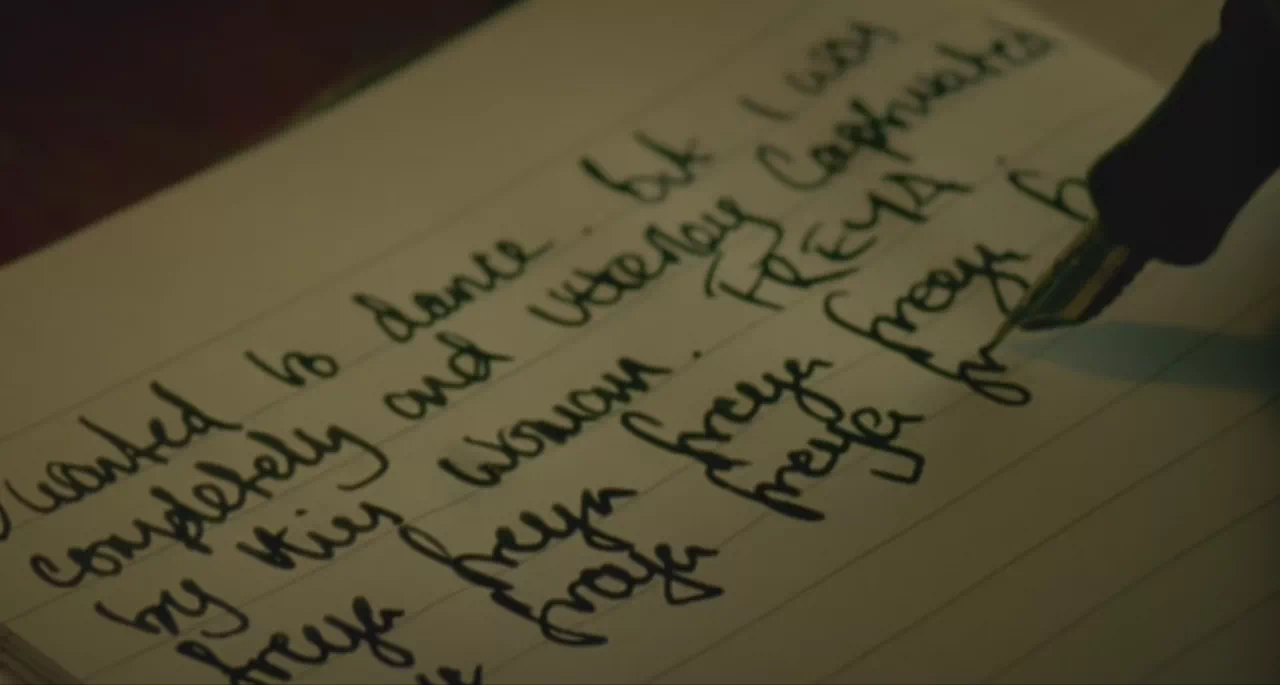 wanted to dance. but I was
completely and utterley Captivated
by this woman. FREYA. fr
freya freya freya freya
freya freya fr